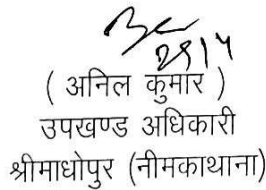 29/4
( अनिल कुमार )
उपखण्ड अधिकारी
श्रीमाधोपुर (नीमकाथाना)